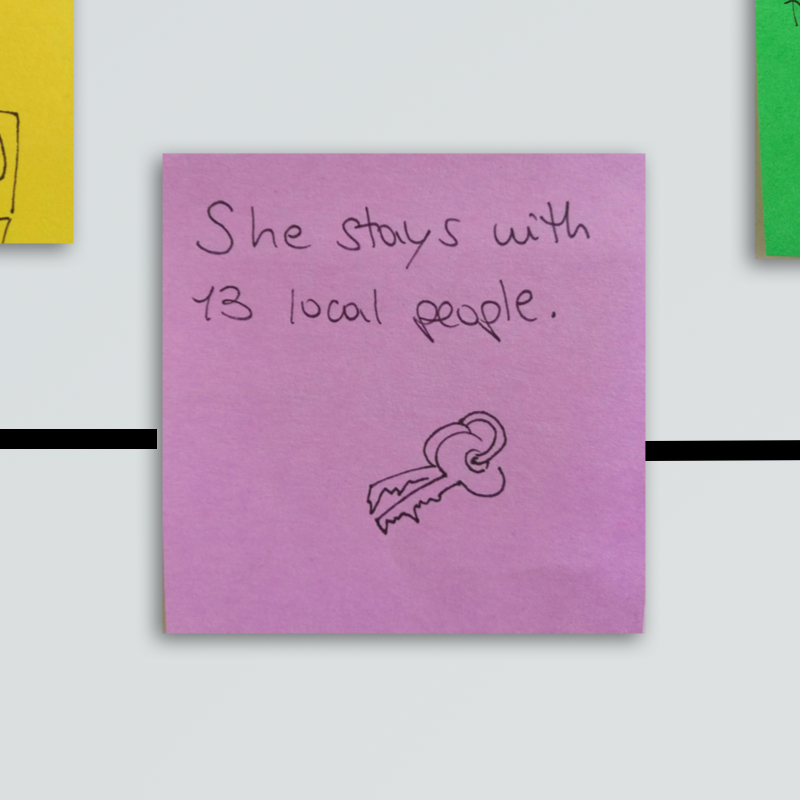 She stays with
13 local people.